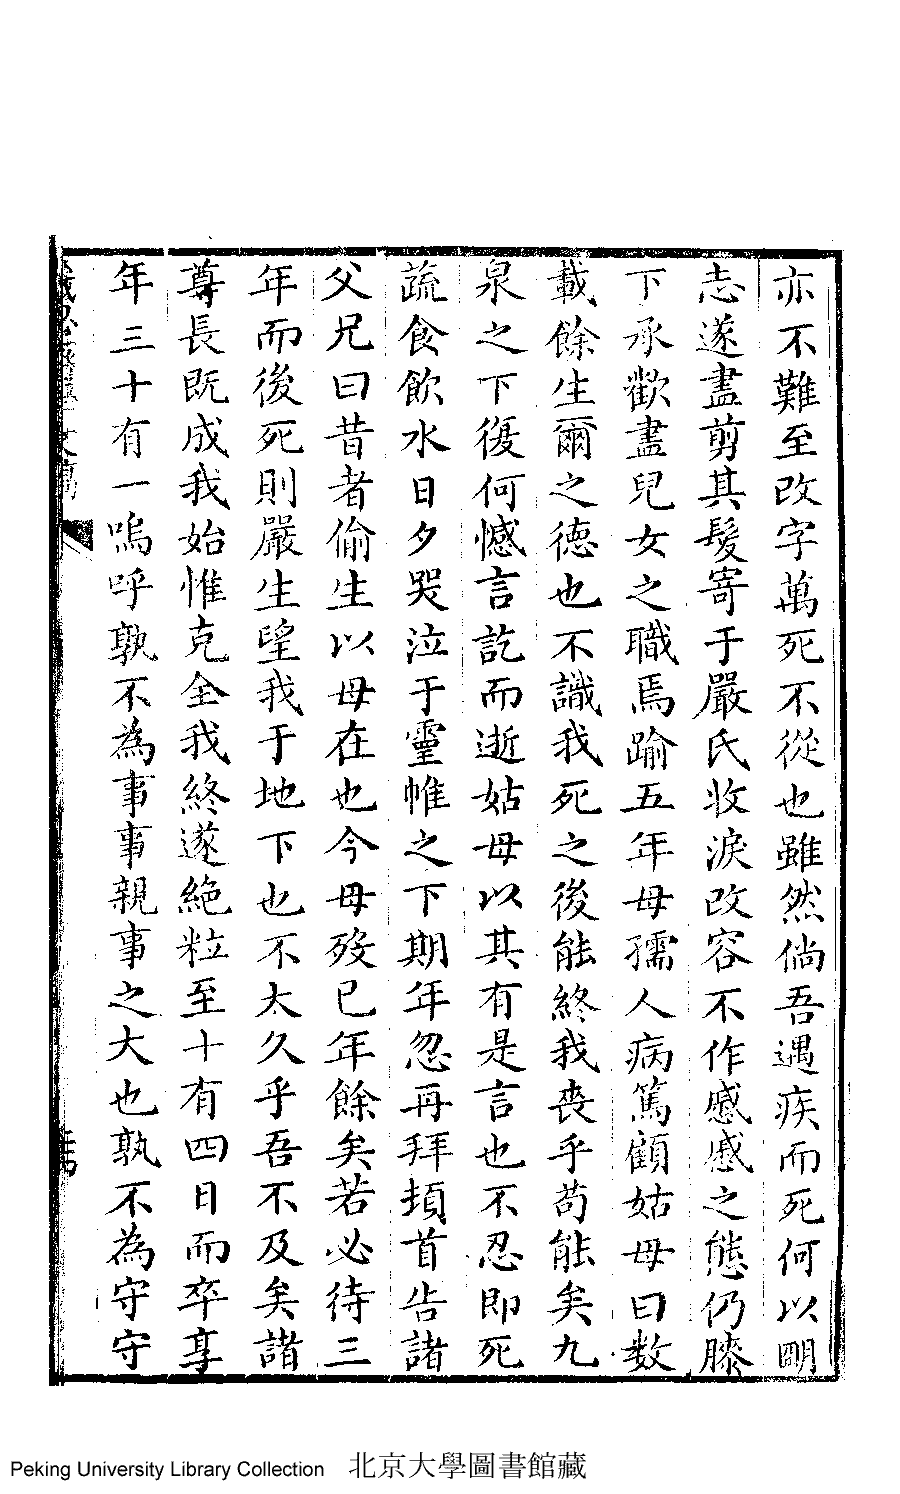 亦不難至改字萬死不從也雖然倘吾遇疾而死何以明
志遂盡剪其髮寄于嚴氏收淚改容不作慼慼之態仍膝
下承歡盡兒女之職焉踰五年母孺人病篤顧姑母曰数
載餘生爾之德也不識我死之後能終我喪乎苟能矣九
泉之下復何憾言訖而逝姑母以其有是言也不忍即死
蔬食飲水日夕哭泣于靈帷之下期年忽再拜頓首告諸
父兄曰昔者偷生以母在也今母歿已年餘矣若必待三
年而後死則嚴生望我于地下也不太久乎吾不及矣諸
尊長既成我始惟克全我終遂絕粒至十有四日而卒享
年三十有一嗚呼孰不為事事親事之大也孰不為守守
文稿
Peking University Library Collection 北京大學圖書館藏